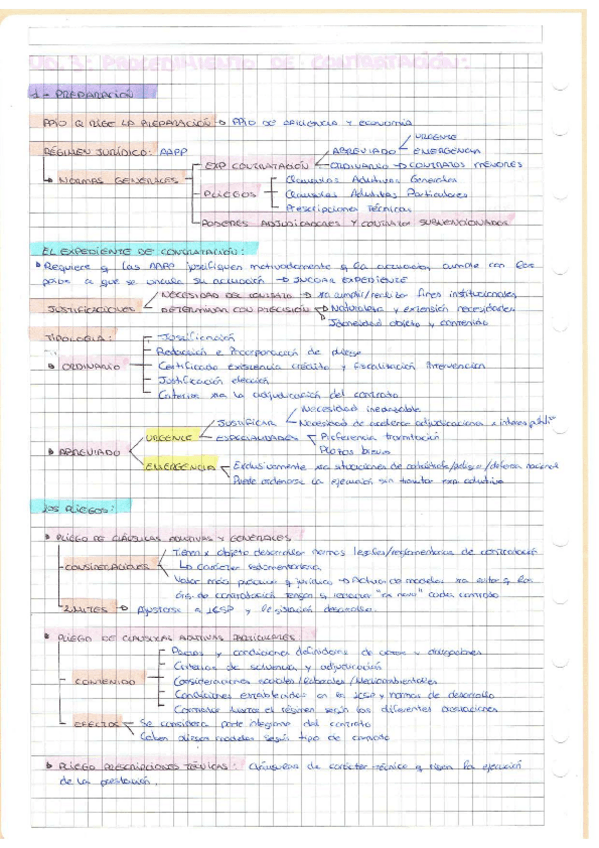 UD. 3: PROCEDIMIENTO DE CONTRATACIÓN:
1 - PREPARACIÓN
PPIO Q RIGE LA PREPARACIÓN → PPIO DE EFICIENCIA Y ECONOMÍA
URGENTE
RÉGIMEN JURÍDICO: AAPP
ABREVIADO EMERGENCIA
NORMAS GENERALES EXP CONTRATACIÓN ORDINARIO → CONTRATOS MENORES
PLIEGOS Cláusulas Adtivas Generales
Cláusulas Adtivas Particulares
Prescripciones Técnicas
PODERES ADJUDICADORES Y CONTRATOS SUBVENCIONADOS
EL EXPEDIENTE DE CONTRATACIÓN:
Requiere q las AAPP justifiquen motivadamente q la actuación cumple con los
pasos a que se vincula su actuación → INCOAR EXPEDIENTE
NECESIDAD DEL CONTRATO → xa cumplir/realizar fines institucionales
JUSTIFICACIONES DETERMINAR CON PRECISIÓN → Naturaleza y extensión necesidades
Idoneidad objeto y contenido
TIPOLOGÍA: Justificación
Redacción e incorporación de pliego
ORDINARIO Certificado existencia crédito y fiscalización intervención
Justificación elección
Criterios xa la adjudicación del contrato
Necesidad inaplazable
JUSTIFICAR Necesidad de acelerar adjudicaciones x interés públ
URGENCIA ESPECIALIDADES Preferencia tramitación
ABREVIADO Plazos breves
EMERGENCIA Exclusivamente xa situaciones de catástrofe/peligro/defensa nacional
Puede ordenarse la ejecución sin tramitar exp adtivo
LOS PLIEGOS:
PLIEGO DE CLÁUSULAS ADTIVAS Y GENERALES
Tienen x objeto desarrollar normas legales/reglamentarias de contratación
CONSIDERACIONES → Carácter reglamentario
Valor más práctico q jurídico → de modelos xa evitar q los
órg. de contratación tengan q redactar "ex novo" cada contrato
LÍMITES → Ajustarse a LCSP y legislación desarrollo.
PLIEGO DE CLÁUSULAS ADTIVAS PARTICULARES
Pactos y condiciones definidoras de dchos y obligaciones
Criterios de solvencia y adjudicación
CONTENIDO Consideraciones sociales/laborales/Medioambientales
Condiciones establecidas en la LCSP y normas de desarrollo
el régimen según las diferentes
EFECTOS Se considera parte integrante del contrato
Caben pliegos modelos según tipo de contrato
PLIEGO PRESCRIPCIONES TÉCNICAS: Cláusulas de carácter técnico q rigen la ejecución
de la prestación.